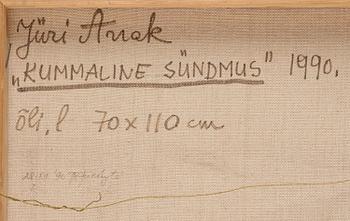 Jüri Arrak
„KUMMALINE SÜNDMUS" 1990.
õli, l 70 x 110 cm